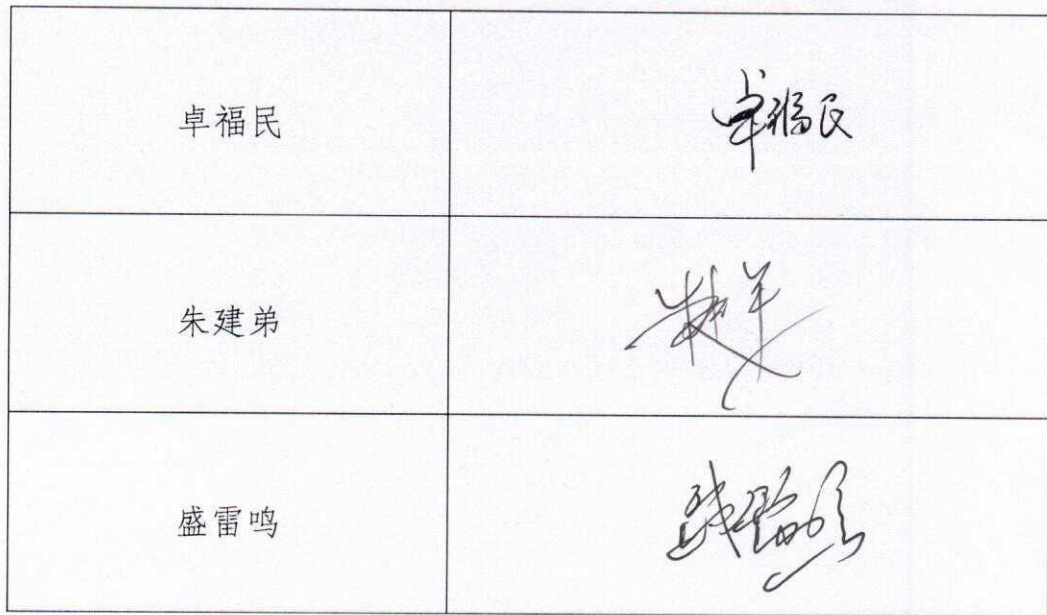 卓福民
卓福民
朱建弟
盛雷鸣
盛雷鸣